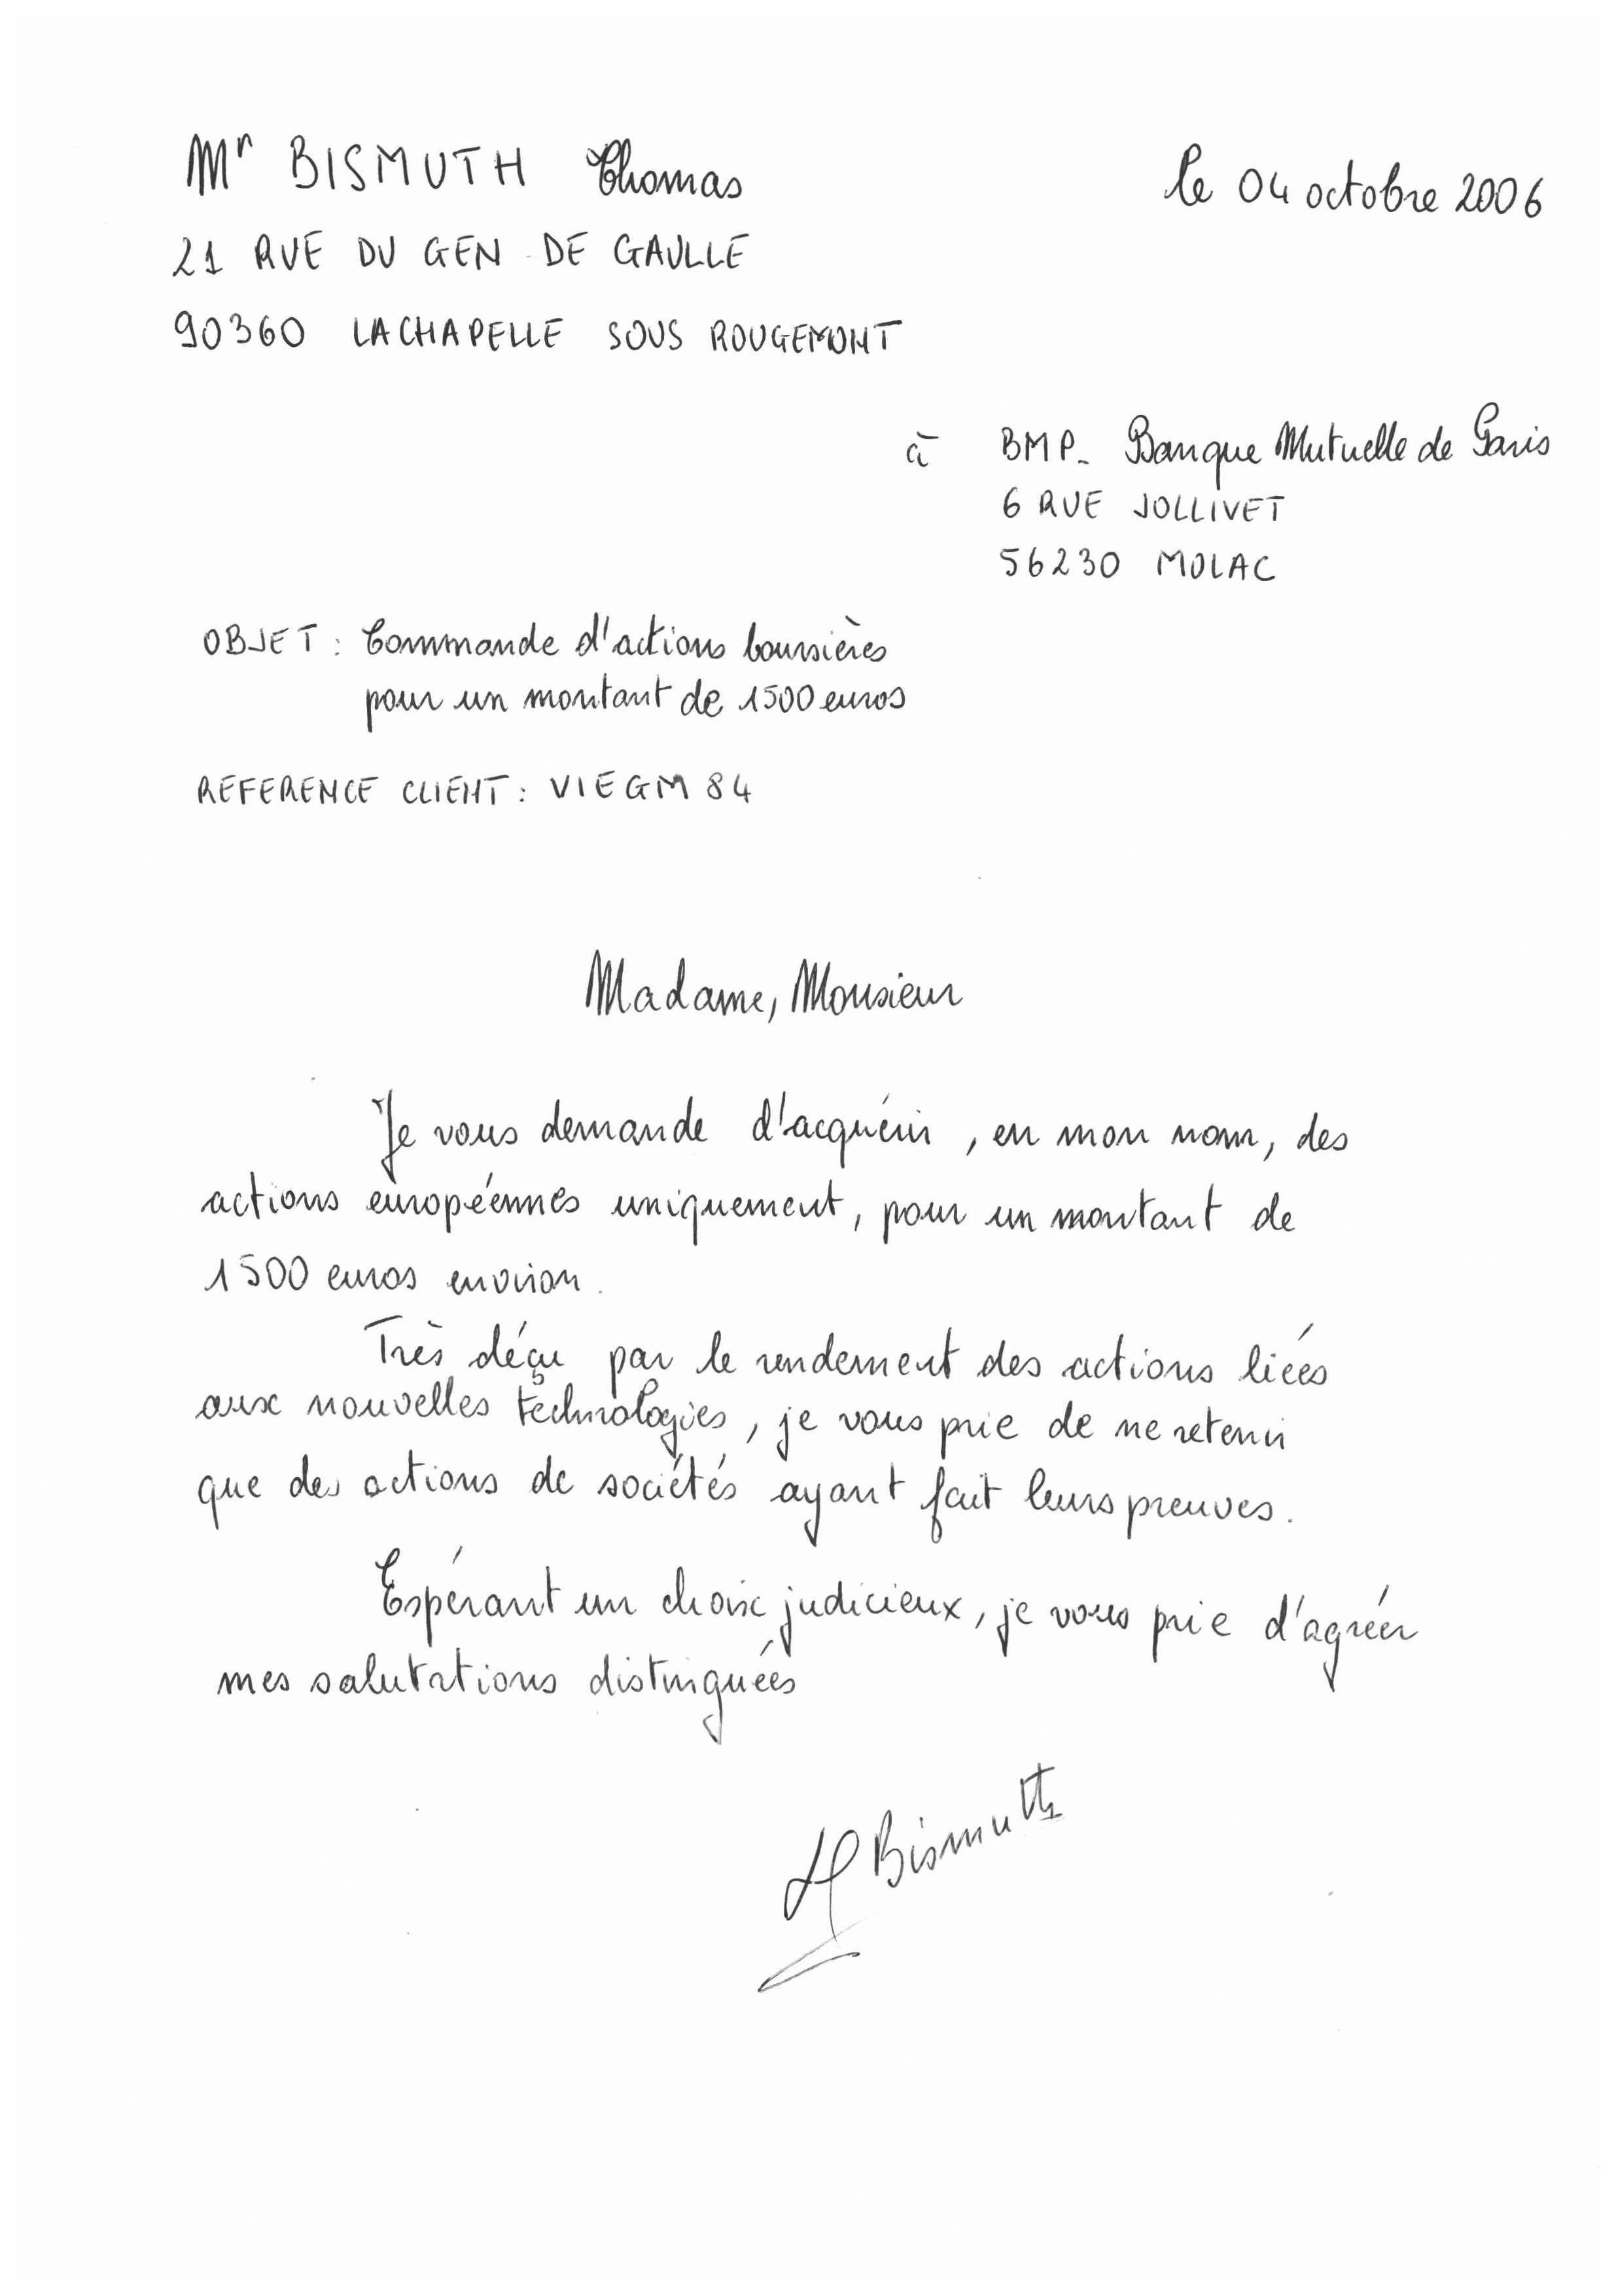 Mr BISMUTH Thomas
le 04 octobre 2006
21 RUE DU GEN DE GAULLE
90360 LACHAPELLE SOUS ROUGEMONT
à BMP_ Banque Mutuelle de Paris
6 RUE JOLLIVET
56230 MOLAC
OBJET : Commande d'actions boursières
pour un montant de 1500 euros
REFERENCE CLIENT : VIEGM 84
Madame, Monsieur
Je vous demande d'acquérir, en mon nom, des
actions européennes uniquement, pour un montant de
1500 euros environ.
Très déçu par le rendement des actions liées
aux nouvelles technologies, je vous prie de ne retenir
que des actions de sociétés ayant fait leurs preuves.
Espérant un choix judicieux, je vous prie d'agréer
mes salutations distinguées
Bismuth